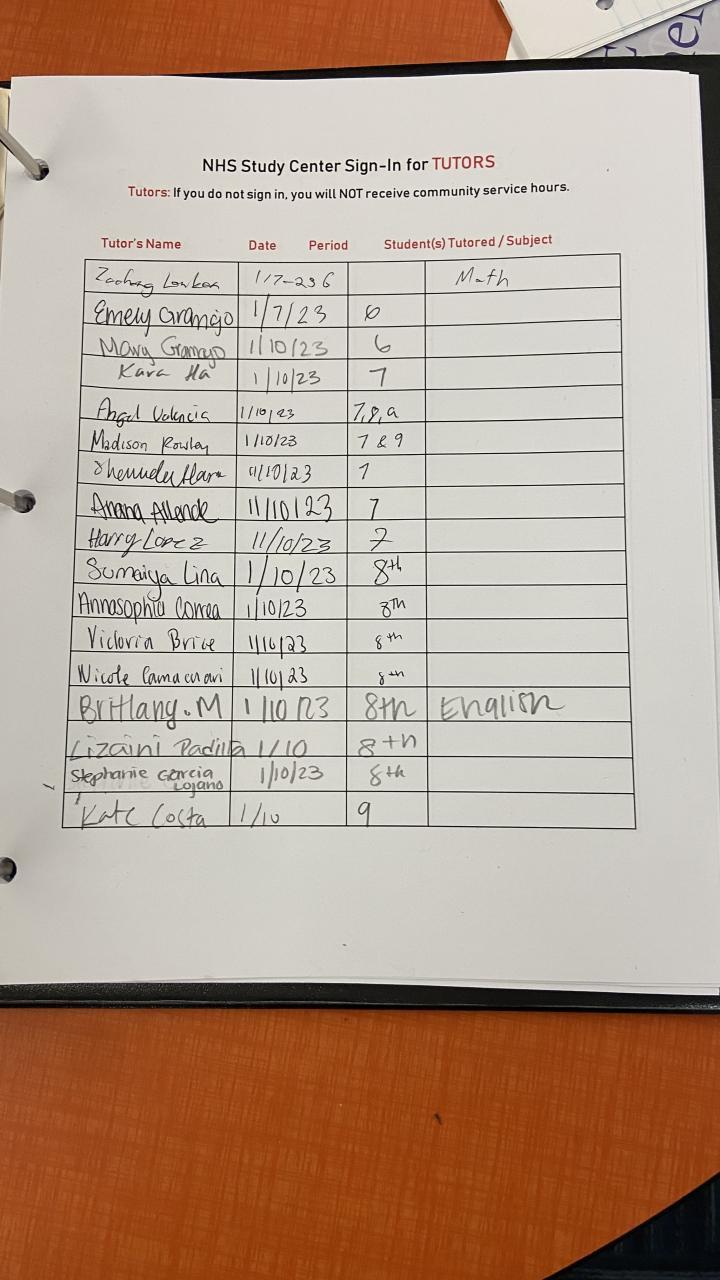 NHS Study Center Sign-In for TUTORS
Tutors: If you do not sign in, you will NOT receive community service hours.
Tutor's Name Date Period Student(s) Tutored / Subject
1/7-236 Math
Emely Gramajo 1/7/23 6
Mary Gramajo 1/10/23 6
Kara Ha 1/10/23 7
Angel Valencia 1/10/23 7,8,9
Madison Rowley 1/10/23 7 & 9
1/10/23 7
Allende 11/10/23 7
Harry Lopez 11/10/23 7
Sumaiya Lina 1/10/23 8th
Annasophia Correa 1/10/23 8th
Victoria Brice 1/10/23 8th
Nicole 1/10/23 8th
Brittany.M 1/10/23 8th English
Lizaini Padilla 1/10 8th
Stephanie Garcia Lojano 1/10/23 8th
Kate Costa 1/10 9